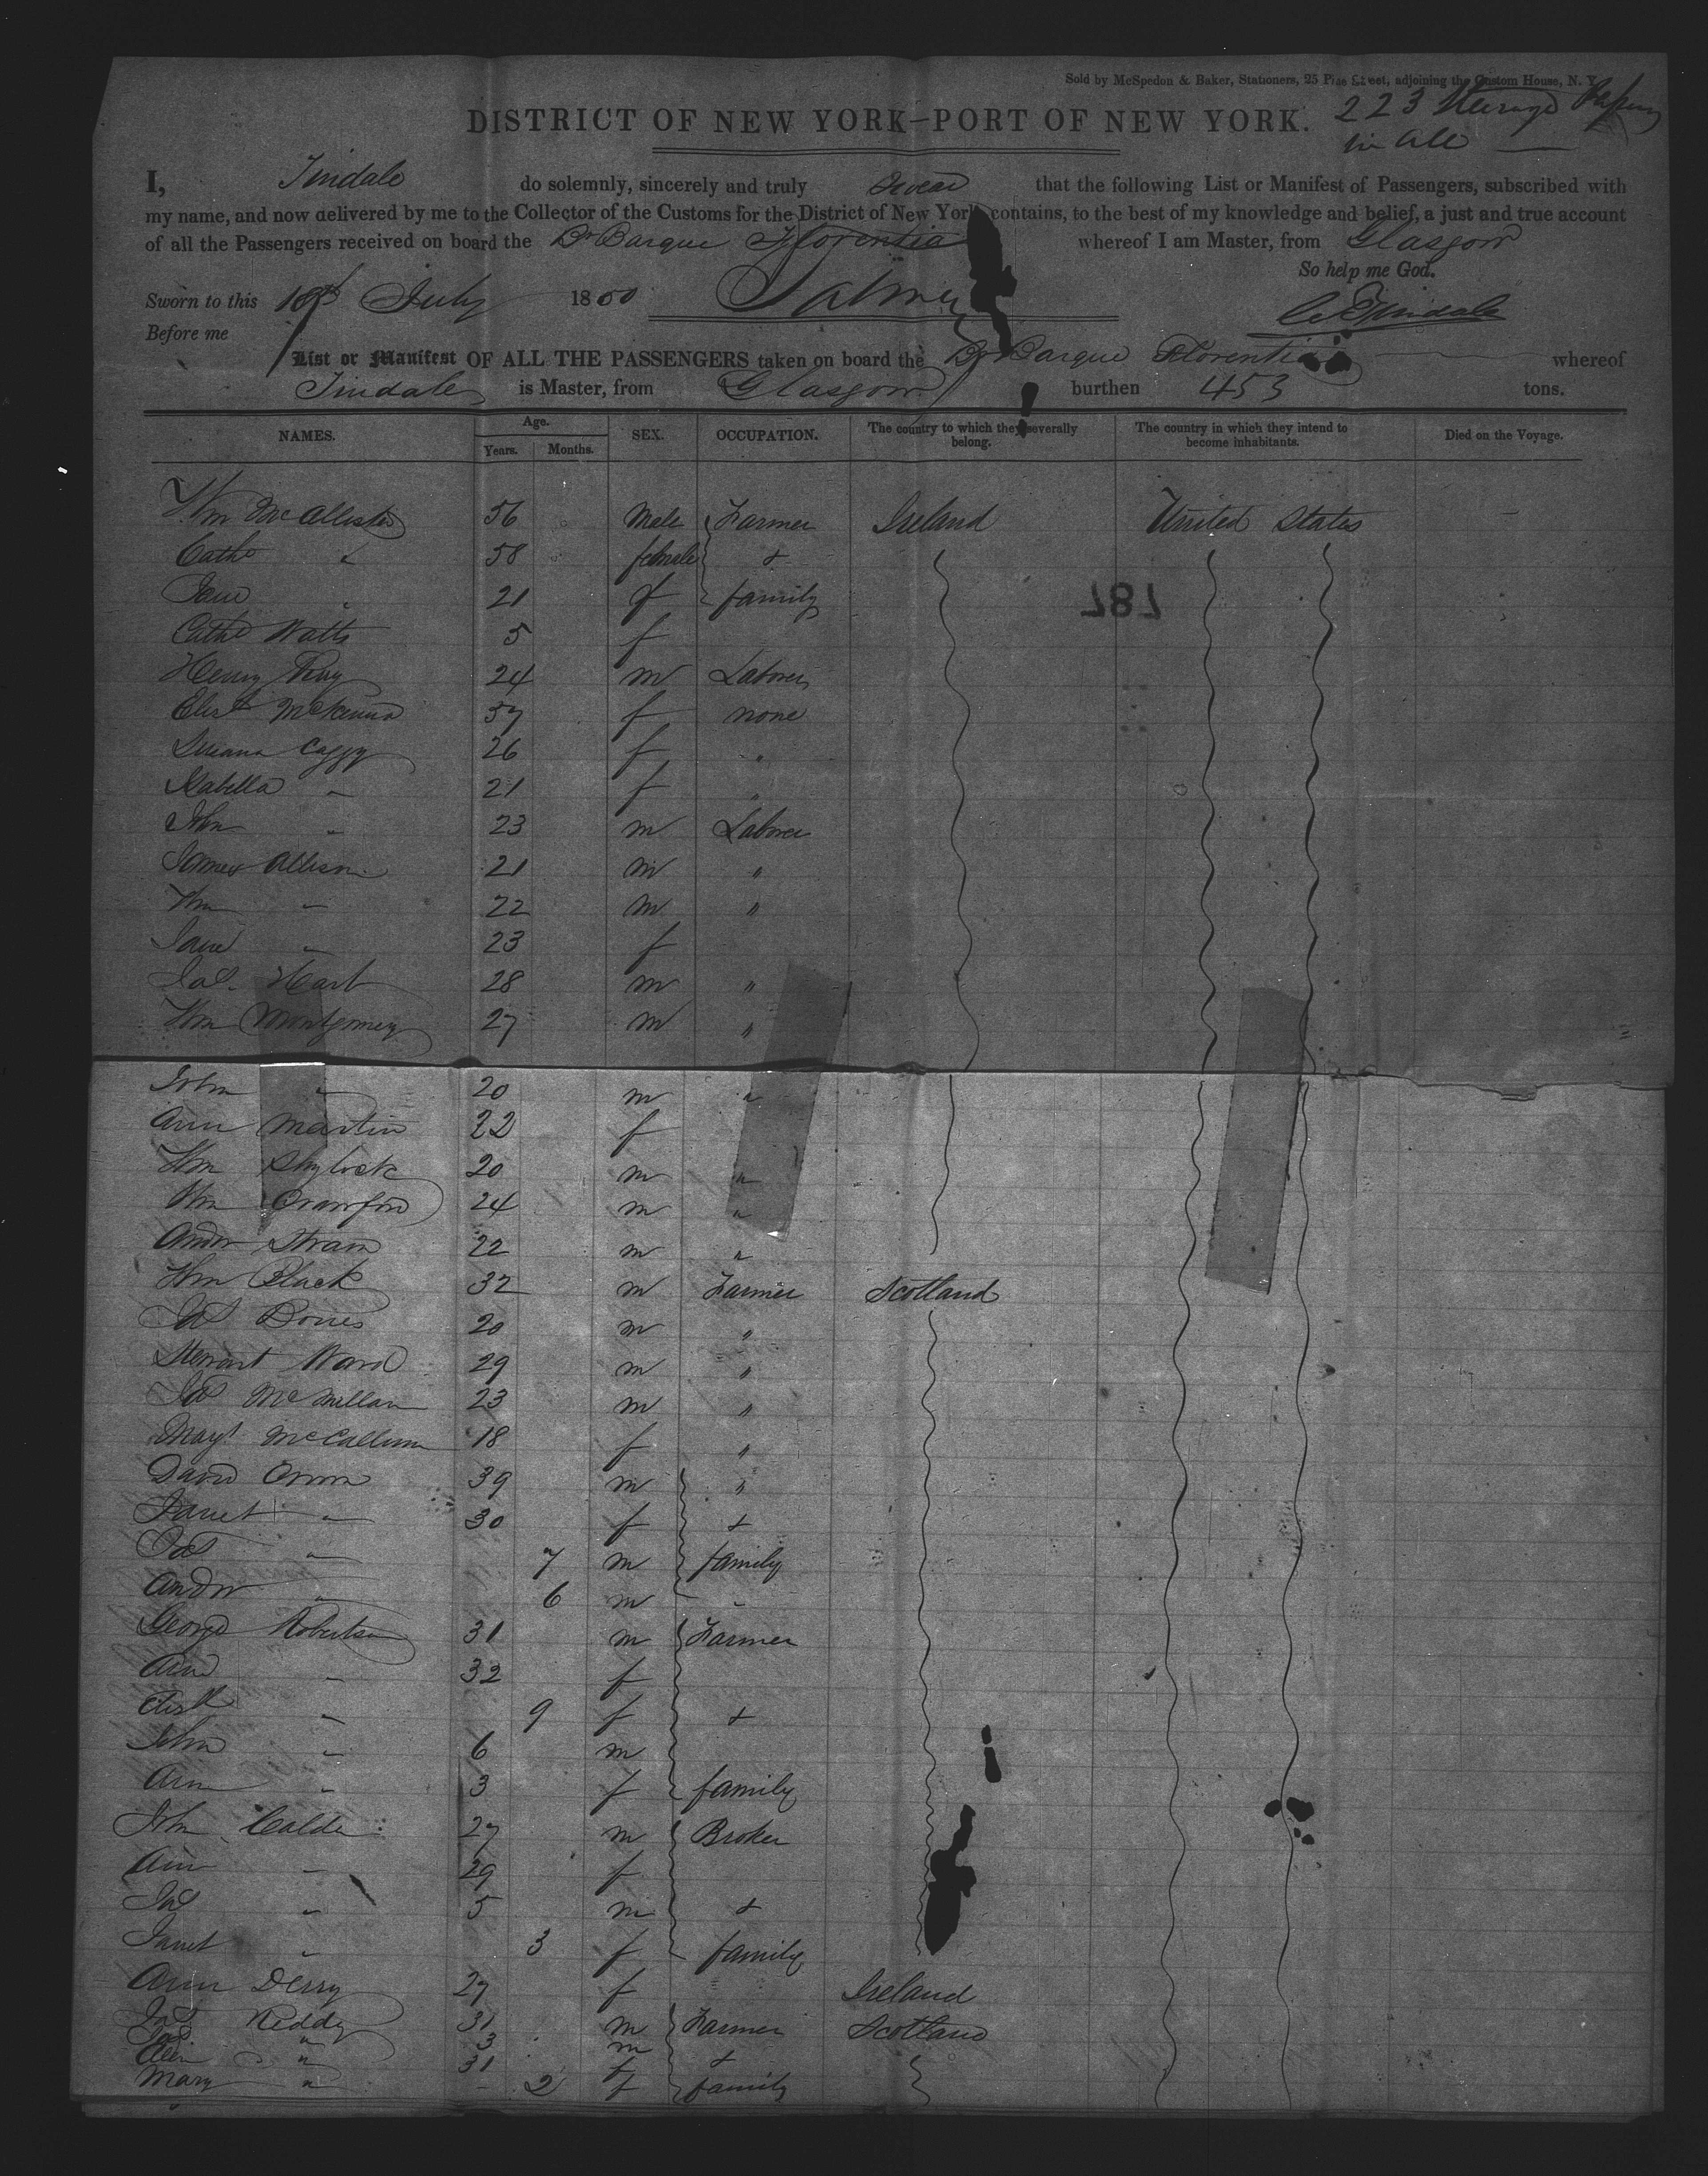 Sold by McSpedon & Baker, Stationers, 25 Pine Street, adjoining the Custom House, N. Y.
223 Steerage
in all
DISTRICT OF NEW YORK-PORT OF NEW YORK.
I, Tindale do solemnly, sincerely and truly Swear that the following List or Manifest of Passengers, subscribed with
my name, and now delivered by me to the Collector of the Customs for the District of New York contains, to the best of my knowledge and belief, a just and true account
of all the Passengers received on board the Br Barque Florentia whereof I am Master, from Glasgow
So help me God.
Sworn to this July 1850
Before me
List or Manifest OF ALL THE PASSENGERS taken on board the Br Barque Florentia whereof
Tindale is Master, from Glasgow burthen 453 tons.
NAMES. Age. Years. Months. SEX. OCCUPATION. The country to which they severally belong. The country in which they intend to become inhabitants. Died on the Voyage.
Wm McAllister 56 Male Farmer Ireland United States
Cathe " 58 female &
Jane " 21 f family
787
Cathe Watts 5 f
Henry 24 m Laborer
Elizth McKenna 57 f none
26 f "
Isabella " 21 f "
John " 23 m Laborer
James Allison 21 m "
Wm " 22 m "
Jane " 23 f
Jas. Hart 28 m "
Wm Montgomery 27 m "
John " 20 m "
Ann Martin 22 f
Wm Shylock 20 m "
Wm Crawford 24 m "
Andw 22 m "
Wm Black 32 m Farmer Scotland
Jas 20 m "
Stewart Ward 29 m "
Jas McMillan 23 m "
Magt McCallum 18 f "
David 39 m "
Janet " 30 f &
Jas " 7 m family
Andw " 6 m "
George Robertson 31 m Farmer
Ann " 32 f
Elizth " 9 f &
John " 6 m
Ann " 3 f family
John Calder 27 m Broker
Ann " 29 f
Jas " 5 m &
Janet " 3 f family
Ann Derry 27 f Ireland
Jas Keddy 31 m Farmer Scotland
Jas. " 3 m
" 31 f &
Mary " 2 f family